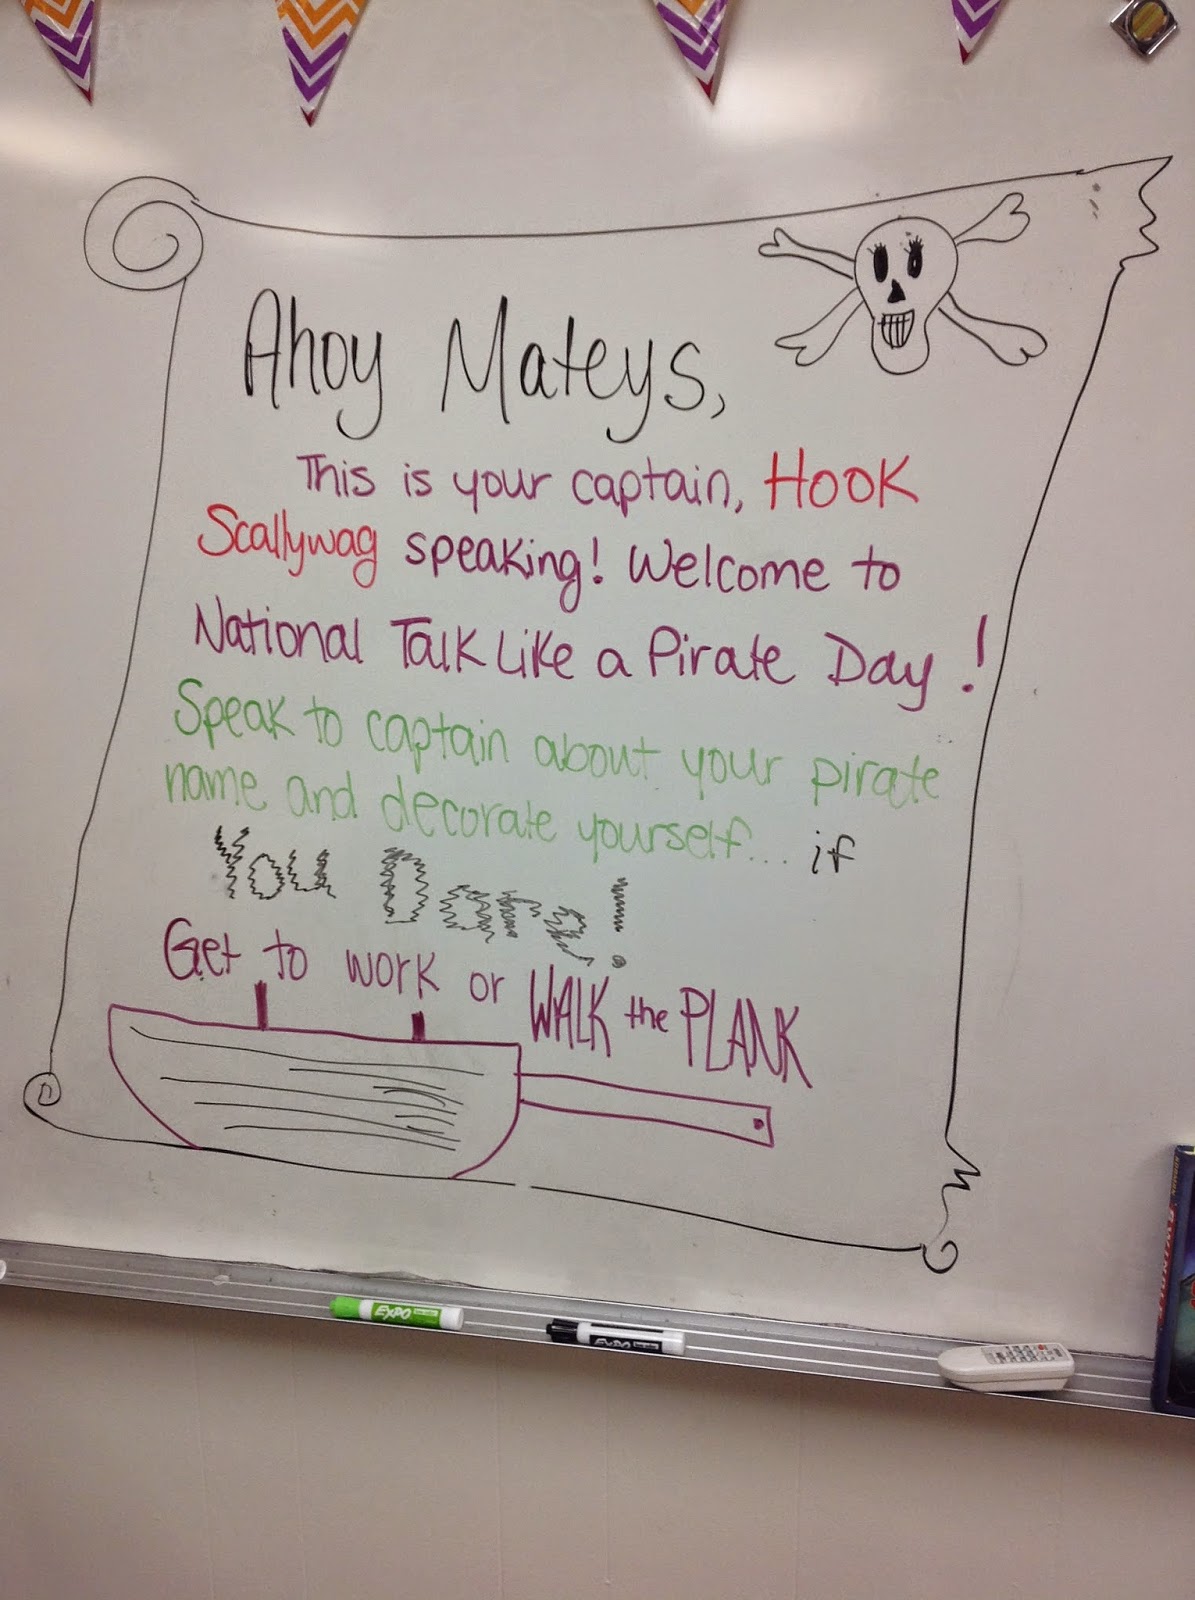 Ahoy Mateys,
This is your captain, Hook
Scallywag speaking! Welcome to
National Talk Like a Pirate Day!
Speak to captain about your pirate
name and decorate yourself... if
You Dare!
Get to work or WALK the PLANK
EXPO
EXPO